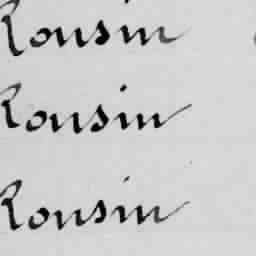 Rousin
Rousin
Rousin